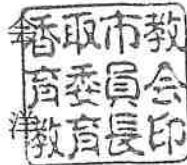 香取市教
育委員会
教育長印
洋